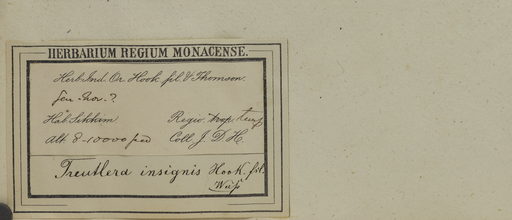 HERBARIUM REGIUM MONACENSE.
Herb. Ind. Or. Hook fil. & Thomson.
Gen. nov.?
Hab. Sikkim Regio trop temp
Alt 8-10000 ped Coll. J. D. H.
Treutlera insignis Hook. fil.